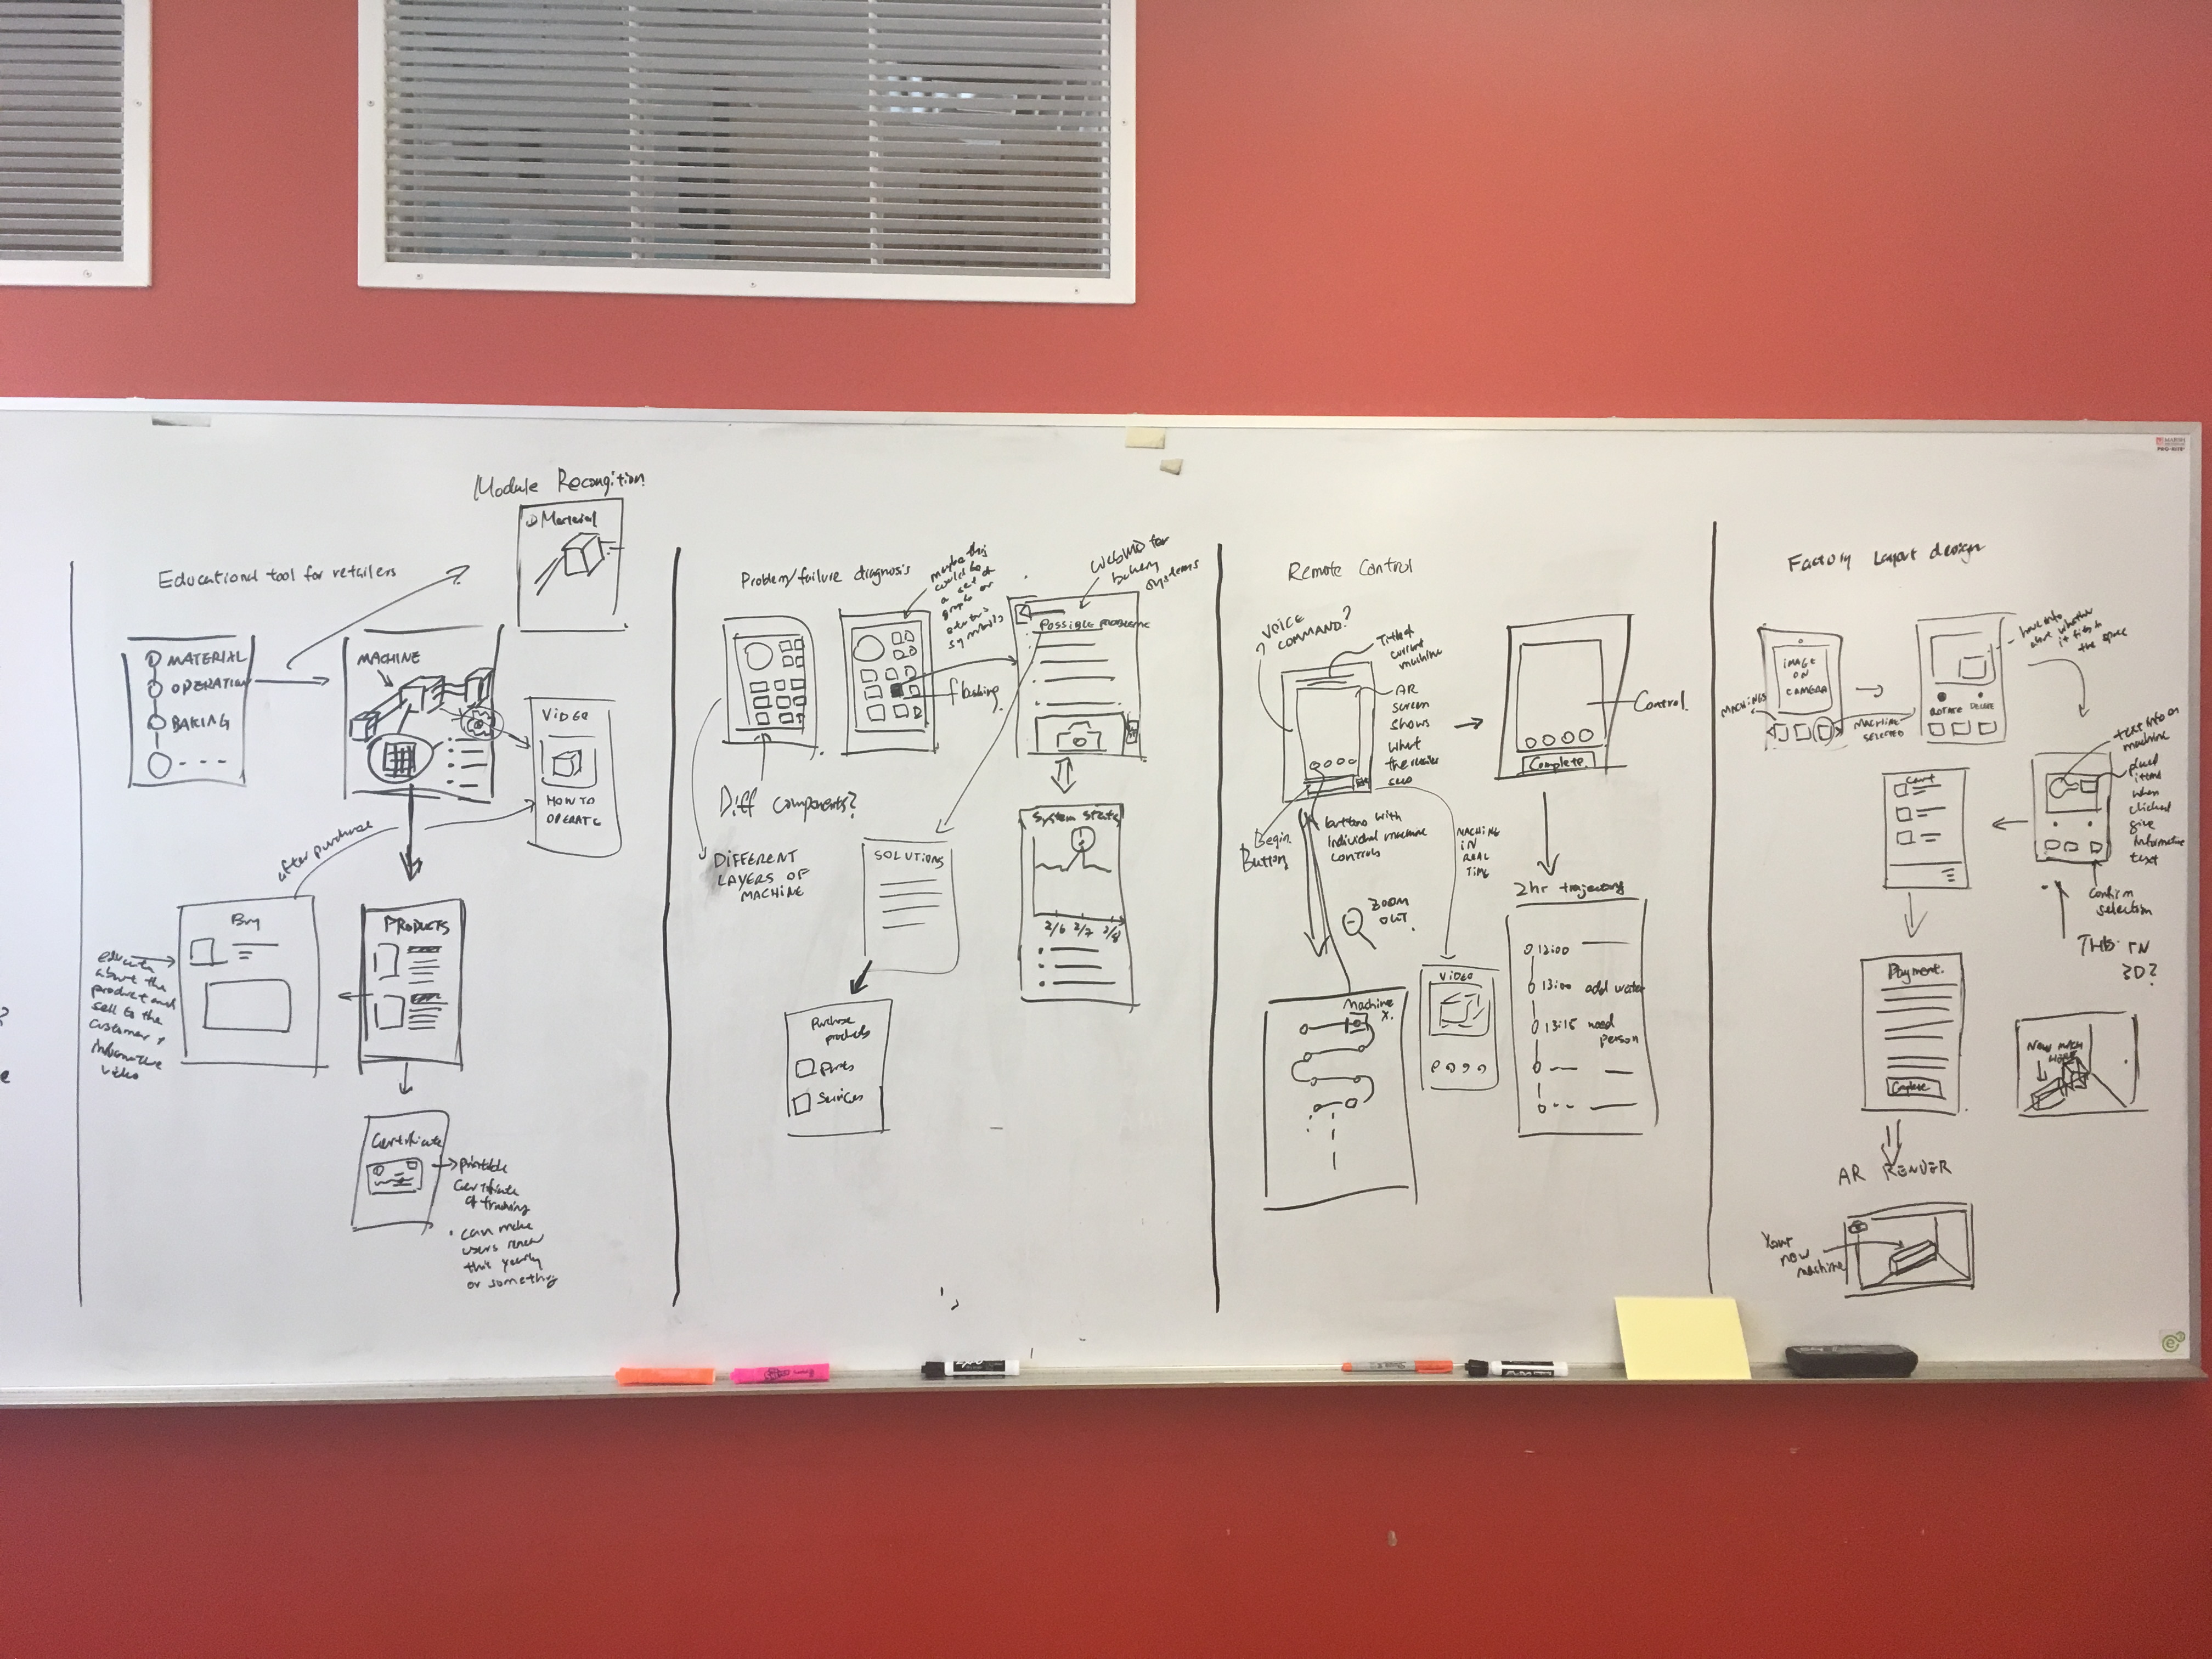 Module Recongition
Material
Educational tool for retailers
MATERIAL
OPERATION
BAKING
MACHINE
VIDEO
HOW TO
OPERATE
after purchase
Buy
PRODUCTS
about the
product and
sell to the
customer,
informative
video
Certificate
printable
certificate
of training
can make
users renew
this yearly
or something
Problem/failure diagnosis
maybe this
could be
a set of
graphs or
symbols
flashing
Diff components?
DIFFERENT
LAYERS OF
MACHINE
WebMD for
bakery
systems
POSSIBLE PROBLEMS
SOLUTIONS
System State
2/6 2/7 2/8
Purchase
products
parts
Services
Remote Control
VOICE
COMMAND?
Title of
current
machine
AR
screen
shows
what
the
sees
Begin
Button
buttons with
individual machine
controls
MACHINE
IN
REAL
TIME
ZOOM
OUT
Machine
X.
VIDEO
Control
Complete
2hr trajectory
12:00
13:00 add water
13:15 need
person
Factory Layout design
IMAGE
ON
CAMERA
MACHINES
MACHINE
SELECTED
ROTATE DELETE
have info
about whether
it fits in
the space
text info on
machine
placed
items
when
clicked
give
informative
text
confirm
selection
THIS IN
3D?
Cart
Payment.
Complete
AR RENDER
Your
new
machine